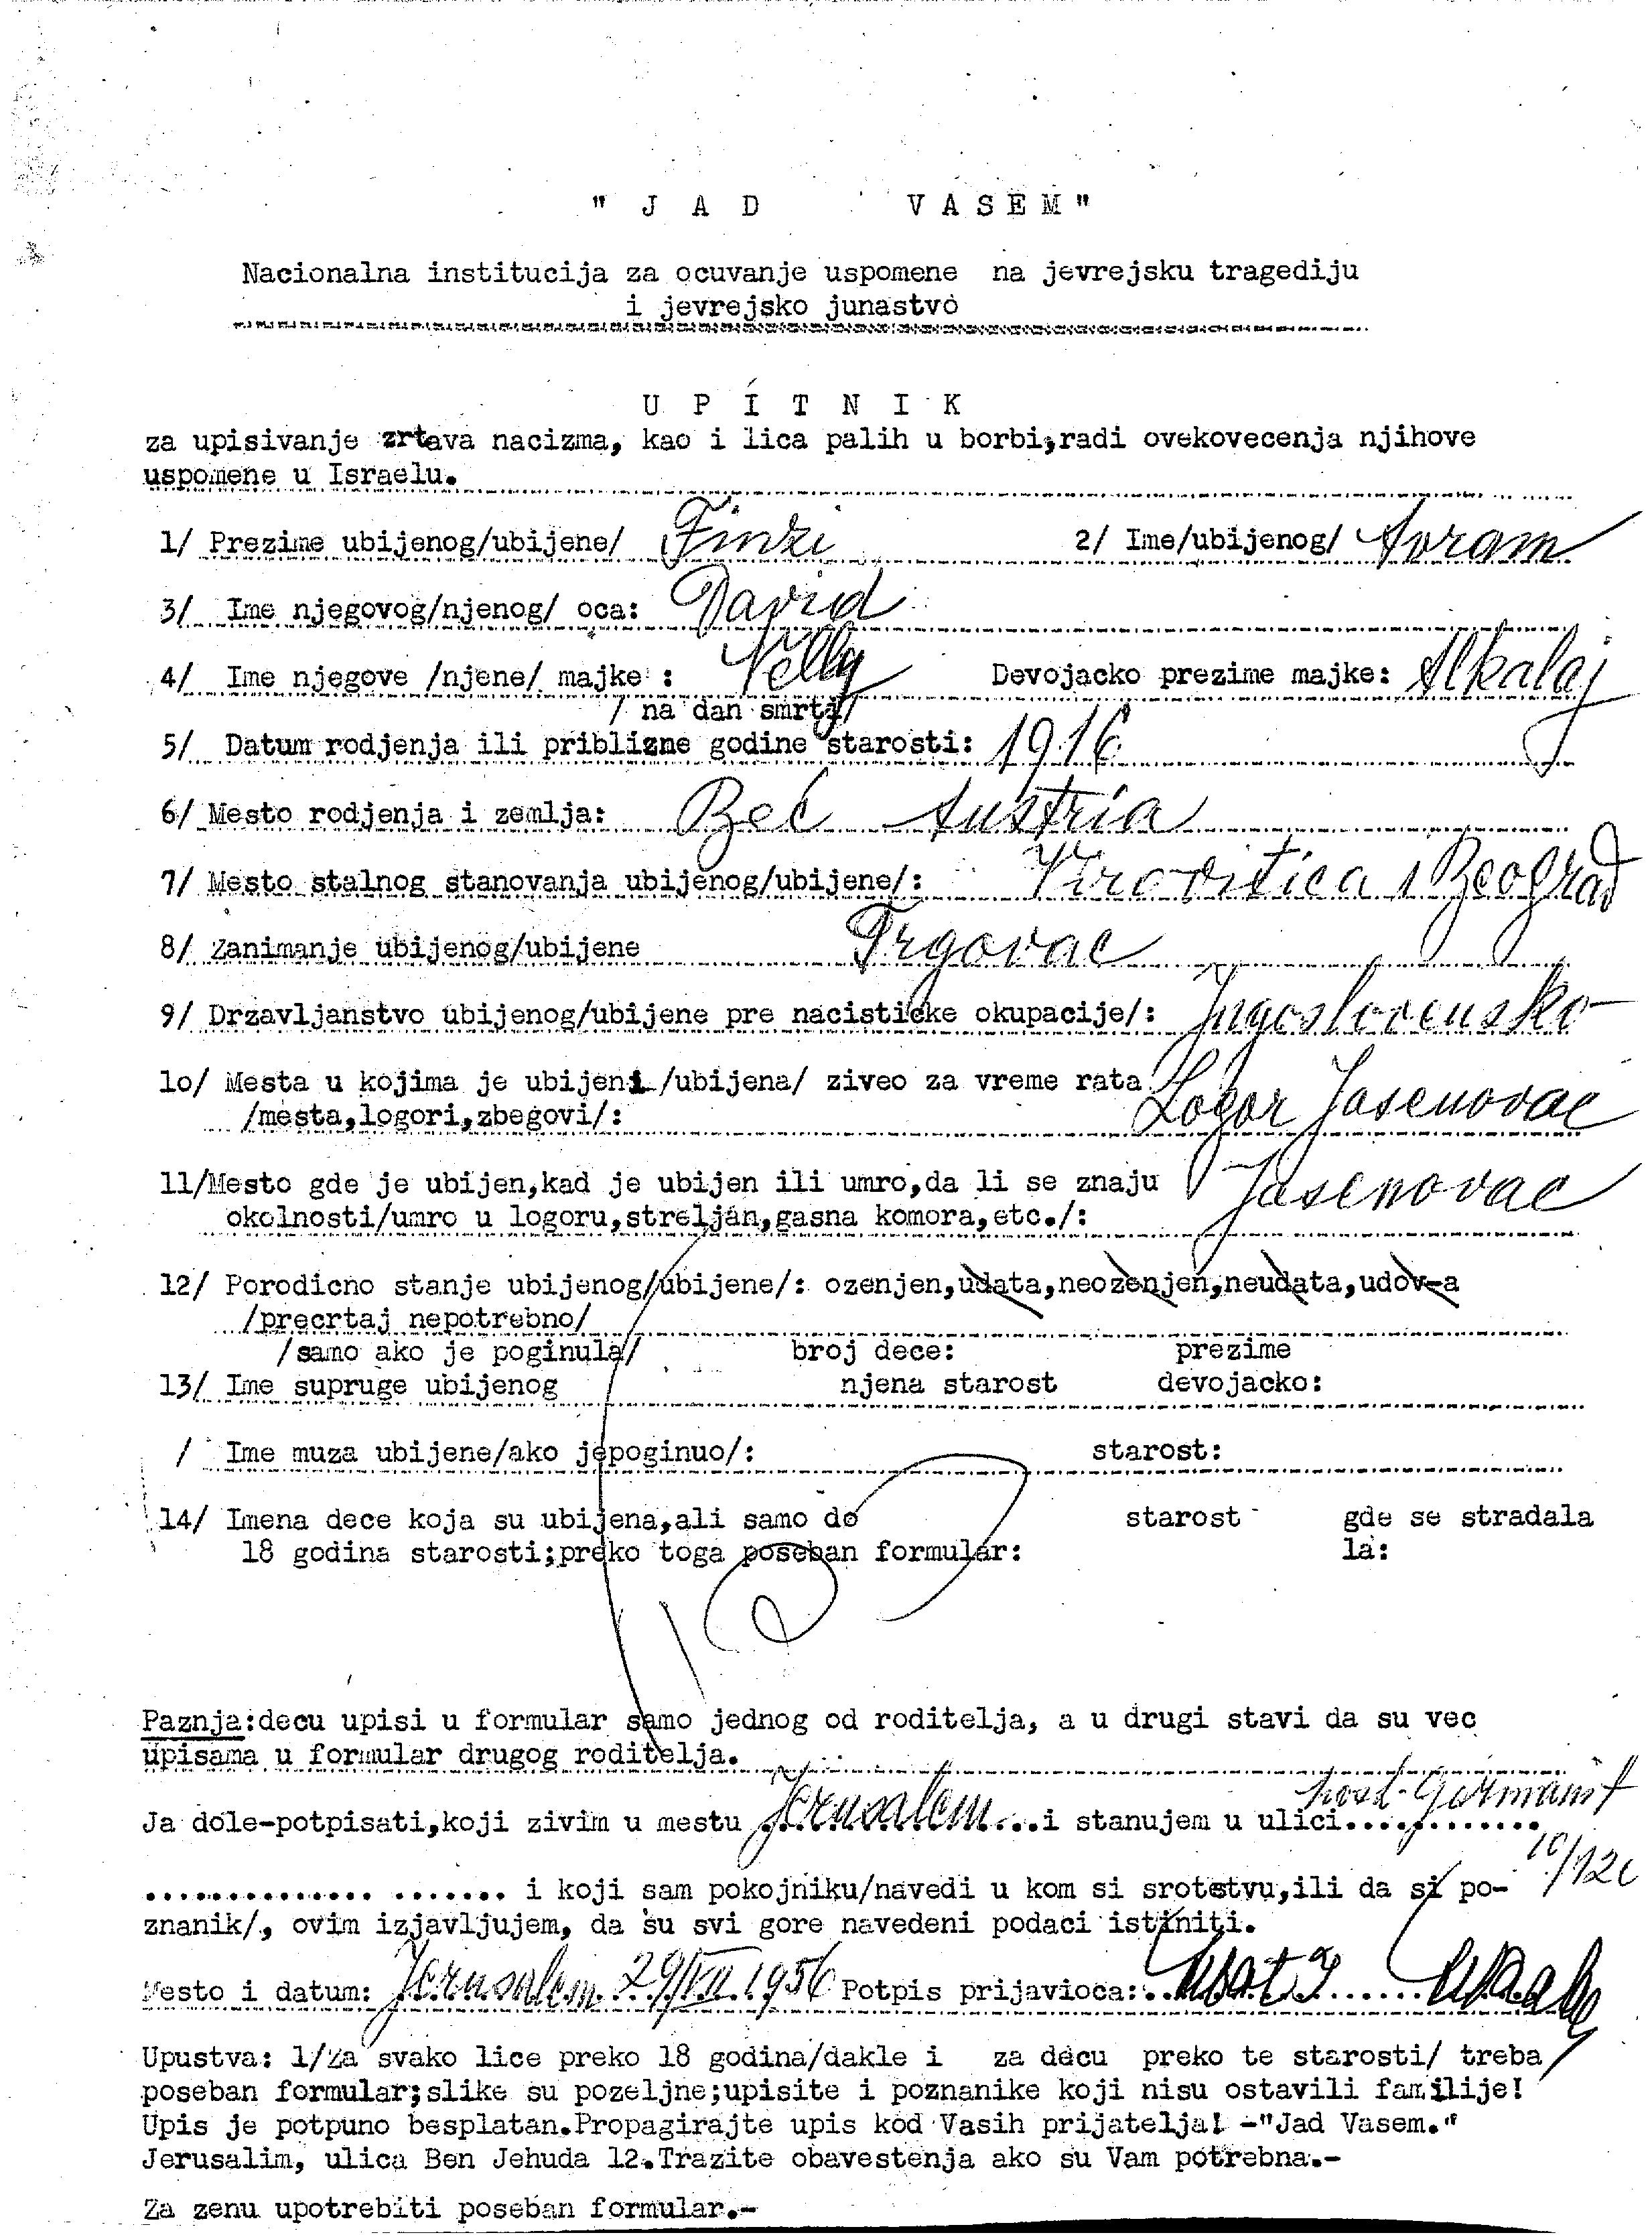 " J A D   V A S E M "
Nacionalna institucija za ocuvanje uspomene na jevrejsku tragediju
i jevrejsko junastvo
U P I T N I K
za upisivanje zrtava nacizma, kao i lica palih u borbi,radi ovekovecenja njihove
uspomene u Israelu.
1/ Prezime ubijenog/ubijene/ Finzi 2/ Ime/ubijenog/ Avram
3/ Ime njegovog/njenog/ oca: David
4/ Ime njegove /njene/ majke : Nelly Devojacko prezime majke: Alkalaj
/ na dan smrti/
5/ Datum rodjenja ili priblizne godine starosti: 1916
6/ Mesto rodjenja i zemlja: Beč Austria
7/ Mesto stalnog stanovanja ubijenog/ubijene/: Virovitica i Beograd
8/ Zanimanje ubijenog/ubijene Trgovac
9/ Drzavljanstvo ubijenog/ubijene pre nacisticke okupacije/: Jugoslovensko
lo/ Mesta u kojima je ubijeni /ubijena/ ziveo za vreme rata Logor Jasenovac
/mesta,logori,zbegovi/:
11/Mesto gde je ubijen,kad je ubijen ili umro,da li se znaju Jasenovac
okolnosti/umro u logoru,streljan,gasna komora,etc./:
12/ Porodicno stanje ubijenog/ubijene/: ozenjen,udata,neozenjen,neudata,udov-a
/precrtaj nepotrebno/
/samo ako je poginula/ broj dece: prezime
13/ Ime supruge ubijenog njena starost devojacko:
/ Ime muza ubijene/ako jepoginuo/: starost:
14/ Imena dece koja su ubijena,ali samo do starost gde se stradala
18 godina starosti;preko toga poseban formular: la:
Paznja:decu upisi u formular samo jednog od roditelja, a u drugi stavi da su vec
upisama u formular drugog roditelja.
Ja dole-potpisati,koji zivim u mestu Jerusalem...i stanujem u ulici............
10/12
.............. ....... i koji sam pokojniku/navedi u kom si srotstvu,ili da si po-
znanik/, ovim izjavljujem, da su svi gore navedeni podaci istiniti.
Mesto i datum: Jerusalem 29/VII.1956 Potpis prijavioca:
Upustva: 1/Za svako lice preko 18 godina/dakle i za decu preko te starosti/ treba
poseban formular;slike su pozeljne;upisite i poznanike koji nisu ostavili familije!
Upis je potpuno besplatan.Propagirajte upis kod Vasih prijatelja! -"Jad Vasem."
Jerusalim, ulica Ben Jehuda 12.Trazite obavestenja ako su Vam potrebna.-
Za zenu upotrebiti poseban formular.-